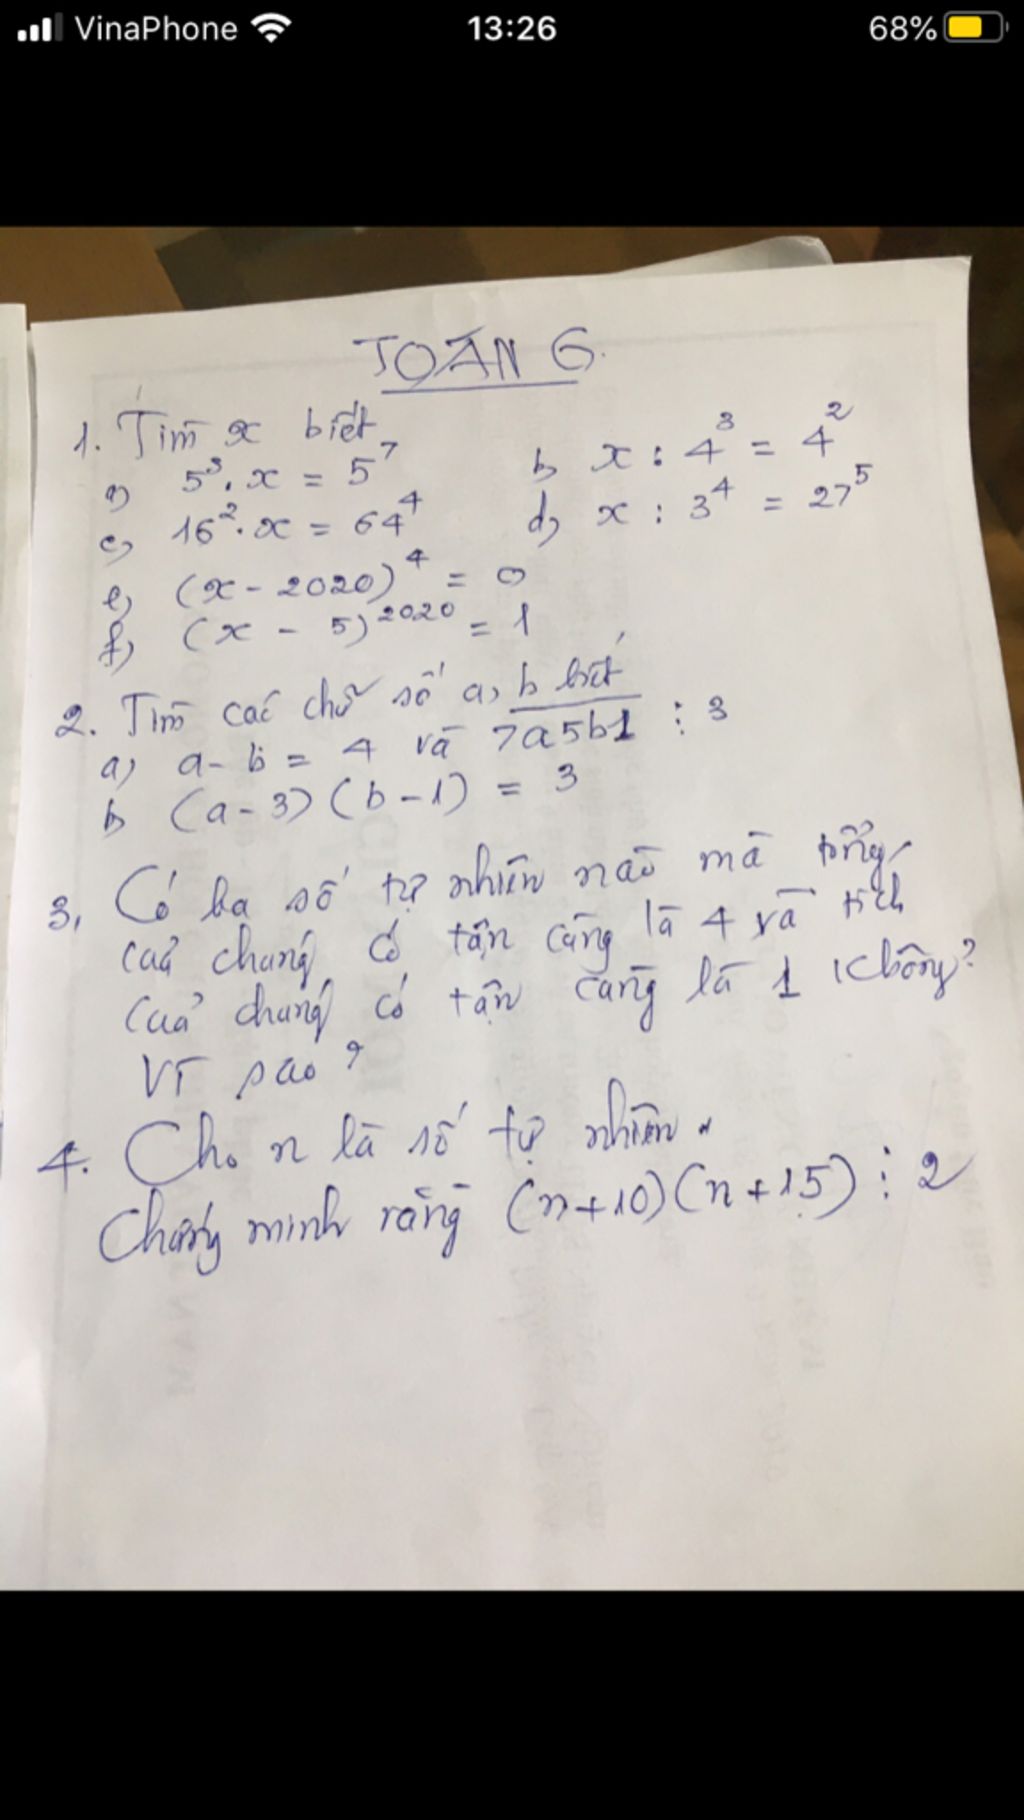 VinaPhone 13:26 68%
TOÁN 6.
1. Tìm x biết
a) 5³.x = 5⁷ b, x : 4³ = 4²
c, 16².x = 64⁴ d, x : 3⁴ = 27⁵
e, (x - 2020)⁴ = 0
f, (x - 5)²⁰²⁰ = 1
2. Tìm các chữ số a, b biết
a, a - b = 4 và 7a5b1 ⋮ 3
b (a - 3)(b - 1) = 3
3, Có ba số tự nhiên nào mà tổng
của chúng có tận cùng là 4 và tích
của chúng có tận cùng là 1 không?
Vì sao?
4. Cho n là số tự nhiên.
Chứng minh rằng (n+10)(n+15) ⋮ 2